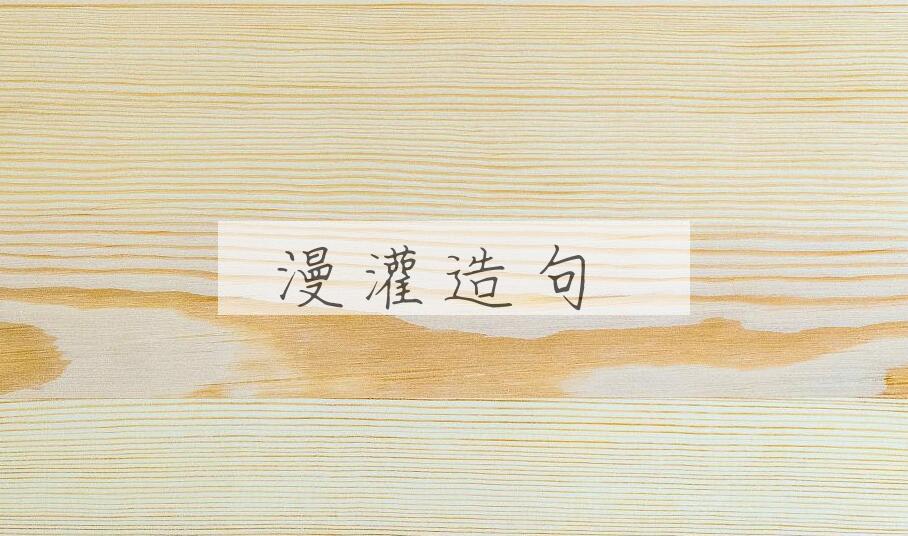 漫灌造句